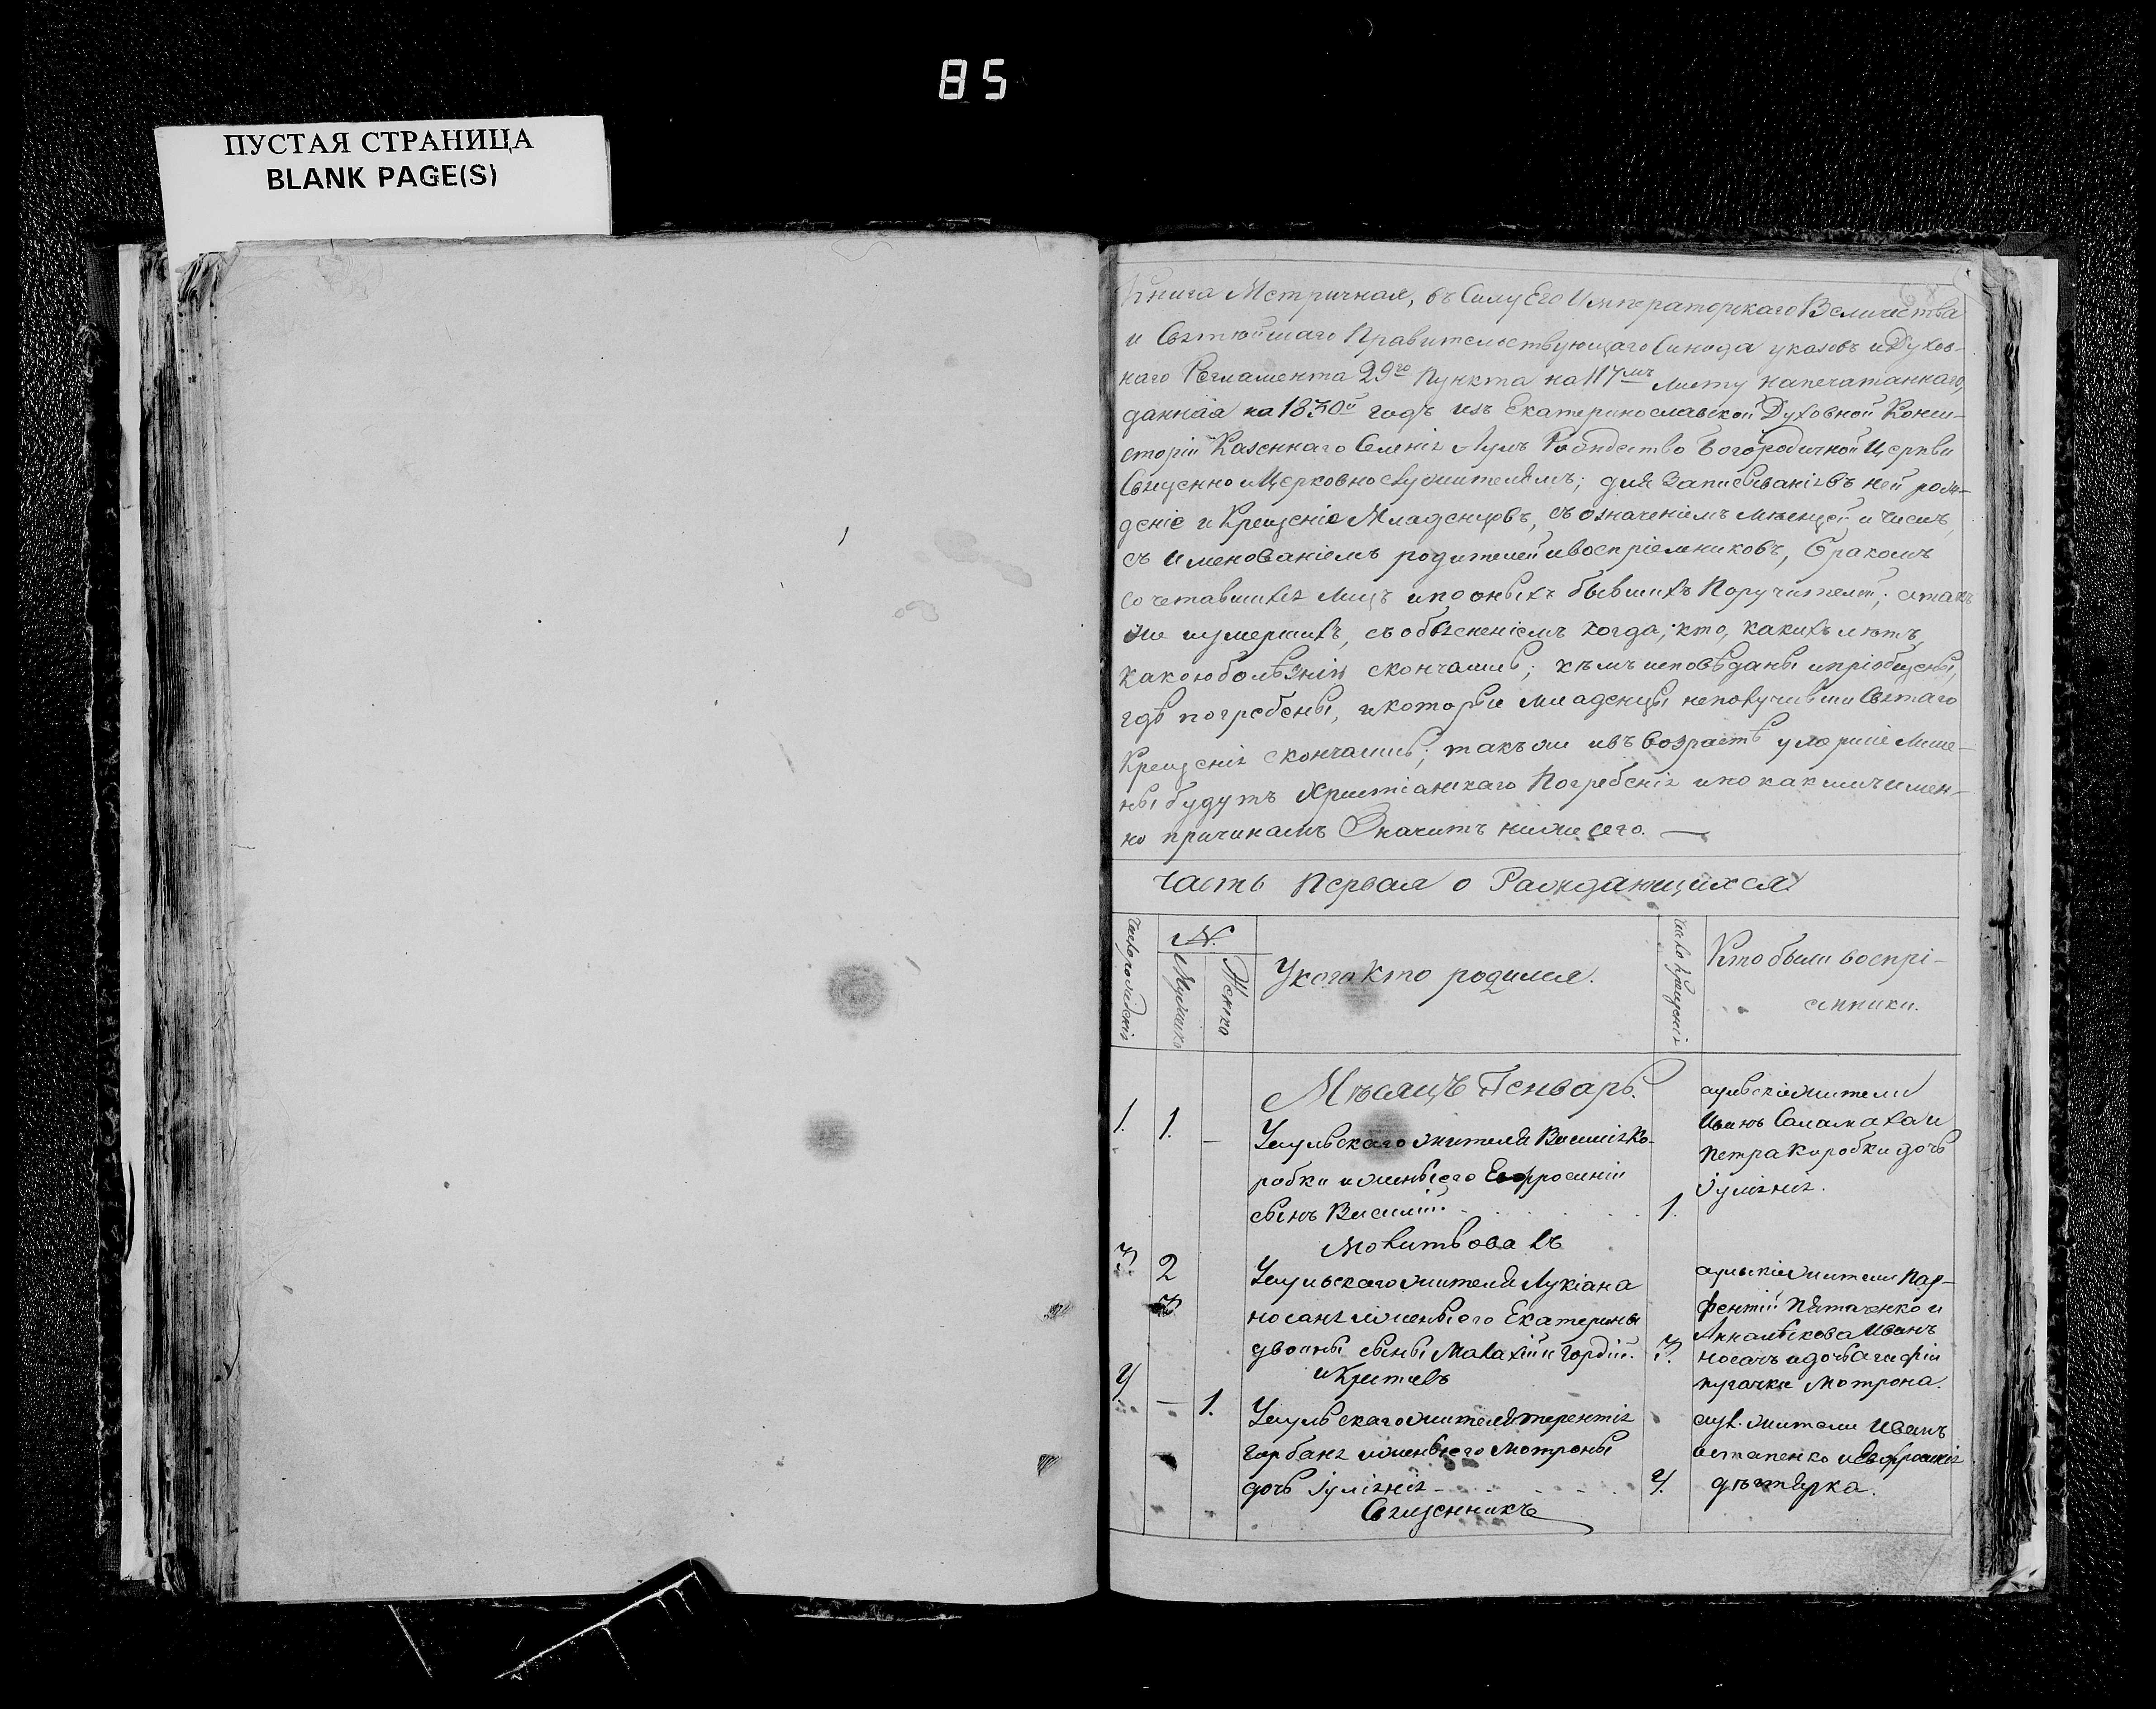 85
ПУСТАЯ СТРАНИЦА
BLANK PAGE(S)
Книга Метричная, въ Силу Его Императорскаго Величества
и Святѣйшаго Правительствующаго Синода указовъ и Духов-
наго Регламента 29го пункта на 117мъ листу напечатаннаго,
данная на 1830й годъ изъ Екатеринославской Духовной Конси-
сторіи Казеннаго Селенія Аулъ Рождество Богородичной Церкви
Священно и Церковнослужителямъ; для записыванія въ ней рож-
деніе и Крещеніе Младенцовъ, съ означеніемъ мѣсяцей и чиселъ,
съ именованіемъ родителей и воспріемниковъ, бракомъ
сочетавшихся лицъ и по оныхъ бывшихъ Поручителей; а такъ
же и умершихъ, съ объясненіемъ когда, кто, какихъ лѣтъ,
какою болѣзнію скончались; кѣмъ исповѣданы и пріобщены,
гдѣ погребены, и которые младенцы неполучивши Святаго
Крещенія скончались; такъ же и въ возрастѣ умершіе лише-
ны будутъ Христіанскаго Погребенія и по какимъ имен-
но причинамъ Значитъ ниже сего. —
Часть Первая о Раждающихся
Число рожденія
№.
Мужеска
Женска
У кого кто родился.
Число крещенія
Кто были воспрі-
емники.
Мѣсяцъ Генварь.
1. 1. —
Уаульскаго жителя Василія Ко-
робки и жены его Евфросиніи
сынъ Василій 1.
аульскіе жители
Иванъ Саламаха и
Петра Коробки дочь
Іуліянія.
Молитвовалъ
3. 2
3
Уаульскаго жителя Лукіана
носаня и жены его Екатерины
двойны сыны Малахій и Гордій. 3.
аульскіе жители Пар-
фентій Пятаченко и
Иванъ
носачъ и дочь Агафіи
пугачки Мотрона.
и Крестилъ
4. — 1.
Уаульскаго жителя терентія
Горбаня и жены его Мотроны
дочь Іуліянія 4.
аул. жители Иванъ
остапенко и Евфросинія
дѣгтярка.
Священникъ